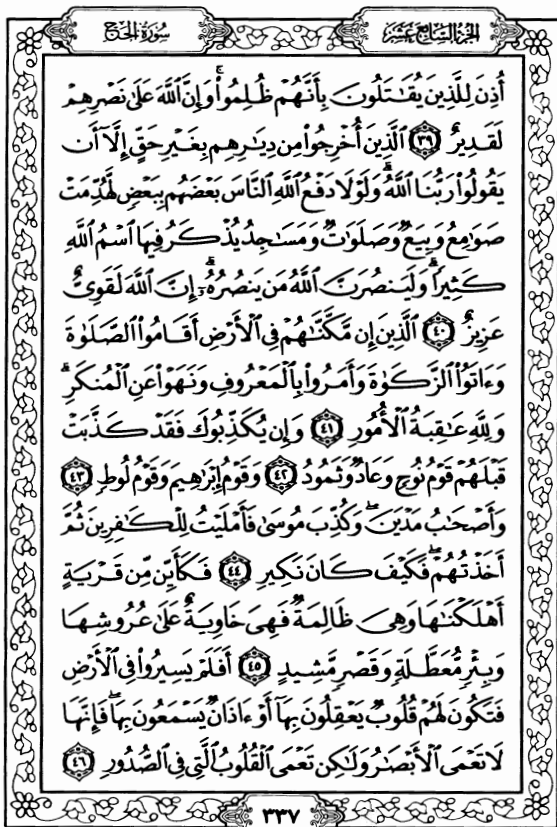 سُورَةُ الحَجِّ
الجُزْءُ السَّابِعَ عَشَرَ
أُذِنَ لِلَّذِينَ يُقَٰتَلُونَ بِأَنَّهُمْ ظُلِمُوا۟ ۚ وَإِنَّ ٱللَّهَ عَلَىٰ نَصْرِهِمْ
لَقَدِيرٌ ﴿٣٩﴾ ٱلَّذِينَ أُخْرِجُوا۟ مِن دِيَٰرِهِم بِغَيْرِ حَقٍّ إِلَّآ أَن
يَقُولُوا۟ رَبُّنَا ٱللَّهُ ۗ وَلَوْلَا دَفْعُ ٱللَّهِ ٱلنَّاسَ بَعْضَهُم بِبَعْضٍ لَّهُدِّمَتْ
صَوَٰمِعُ وَبِيَعٌ وَصَلَوَٰتٌ وَمَسَٰجِدُ يُذْكَرُ فِيهَا ٱسْمُ ٱللَّهِ
كَثِيرًا ۗ وَلَيَنصُرَنَّ ٱللَّهُ مَن يَنصُرُهُۥٓ ۗ إِنَّ ٱللَّهَ لَقَوِىٌّ
عَزِيزٌ ﴿٤٠﴾ ٱلَّذِينَ إِن مَّكَّنَّٰهُمْ فِى ٱلْأَرْضِ أَقَامُوا۟ ٱلصَّلَوٰةَ
وَءَاتَوُا۟ ٱلزَّكَوٰةَ وَأَمَرُوا۟ بِٱلْمَعْرُوفِ وَنَهَوْا۟ عَنِ ٱلْمُنكَرِ ۗ
وَلِلَّهِ عَٰقِبَةُ ٱلْأُمُورِ ﴿٤١﴾ وَإِن يُكَذِّبُوكَ فَقَدْ كَذَّبَتْ
قَبْلَهُمْ قَوْمُ نُوحٍ وَعَادٌ وَثَمُودُ ﴿٤٢﴾ وَقَوْمُ إِبْرَٰهِيمَ وَقَوْمُ لُوطٍ ﴿٤٣﴾
وَأَصْحَٰبُ مَدْيَنَ ۖ وَكُذِّبَ مُوسَىٰ فَأَمْلَيْتُ لِلْكَٰفِرِينَ ثُمَّ
أَخَذْتُهُمْ ۖ فَكَيْفَ كَانَ نَكِيرِ ﴿٤٤﴾ فَكَأَيِّن مِّن قَرْيَةٍ
أَهْلَكْنَٰهَا وَهِىَ ظَالِمَةٌ فَهِىَ خَاوِيَةٌ عَلَىٰ عُرُوشِهَا
وَبِئْرٍ مُّعَطَّلَةٍ وَقَصْرٍ مَّشِيدٍ ﴿٤٥﴾ أَفَلَمْ يَسِيرُوا۟ فِى ٱلْأَرْضِ
فَتَكُونَ لَهُمْ قُلُوبٌ يَعْقِلُونَ بِهَآ أَوْ ءَاذَانٌ يَسْمَعُونَ بِهَا ۖ فَإِنَّهَا
لَا تَعْمَى ٱلْأَبْصَٰرُ وَلَٰكِن تَعْمَى ٱلْقُلُوبُ ٱلَّتِى فِى ٱلصُّدُورِ ﴿٤٦﴾
٣٣٧